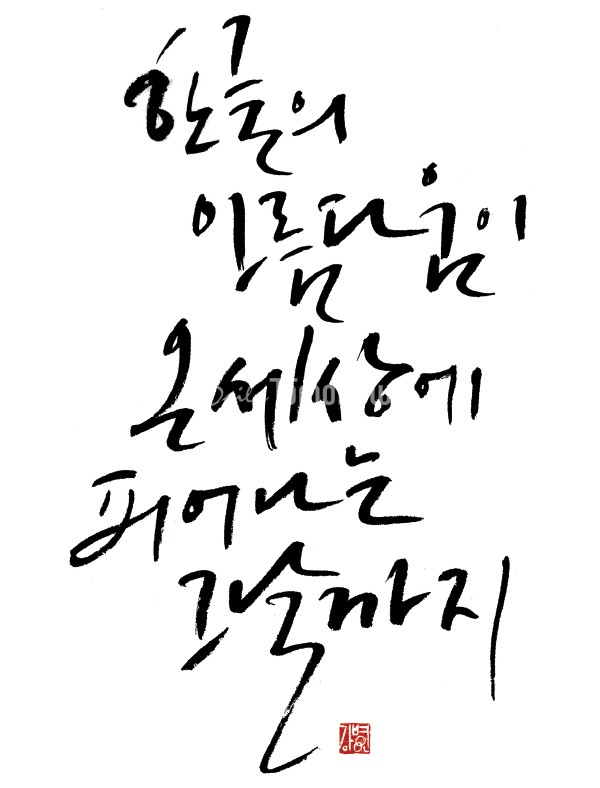 한글의
아름다움이
온세상에
피어나는
그날까지